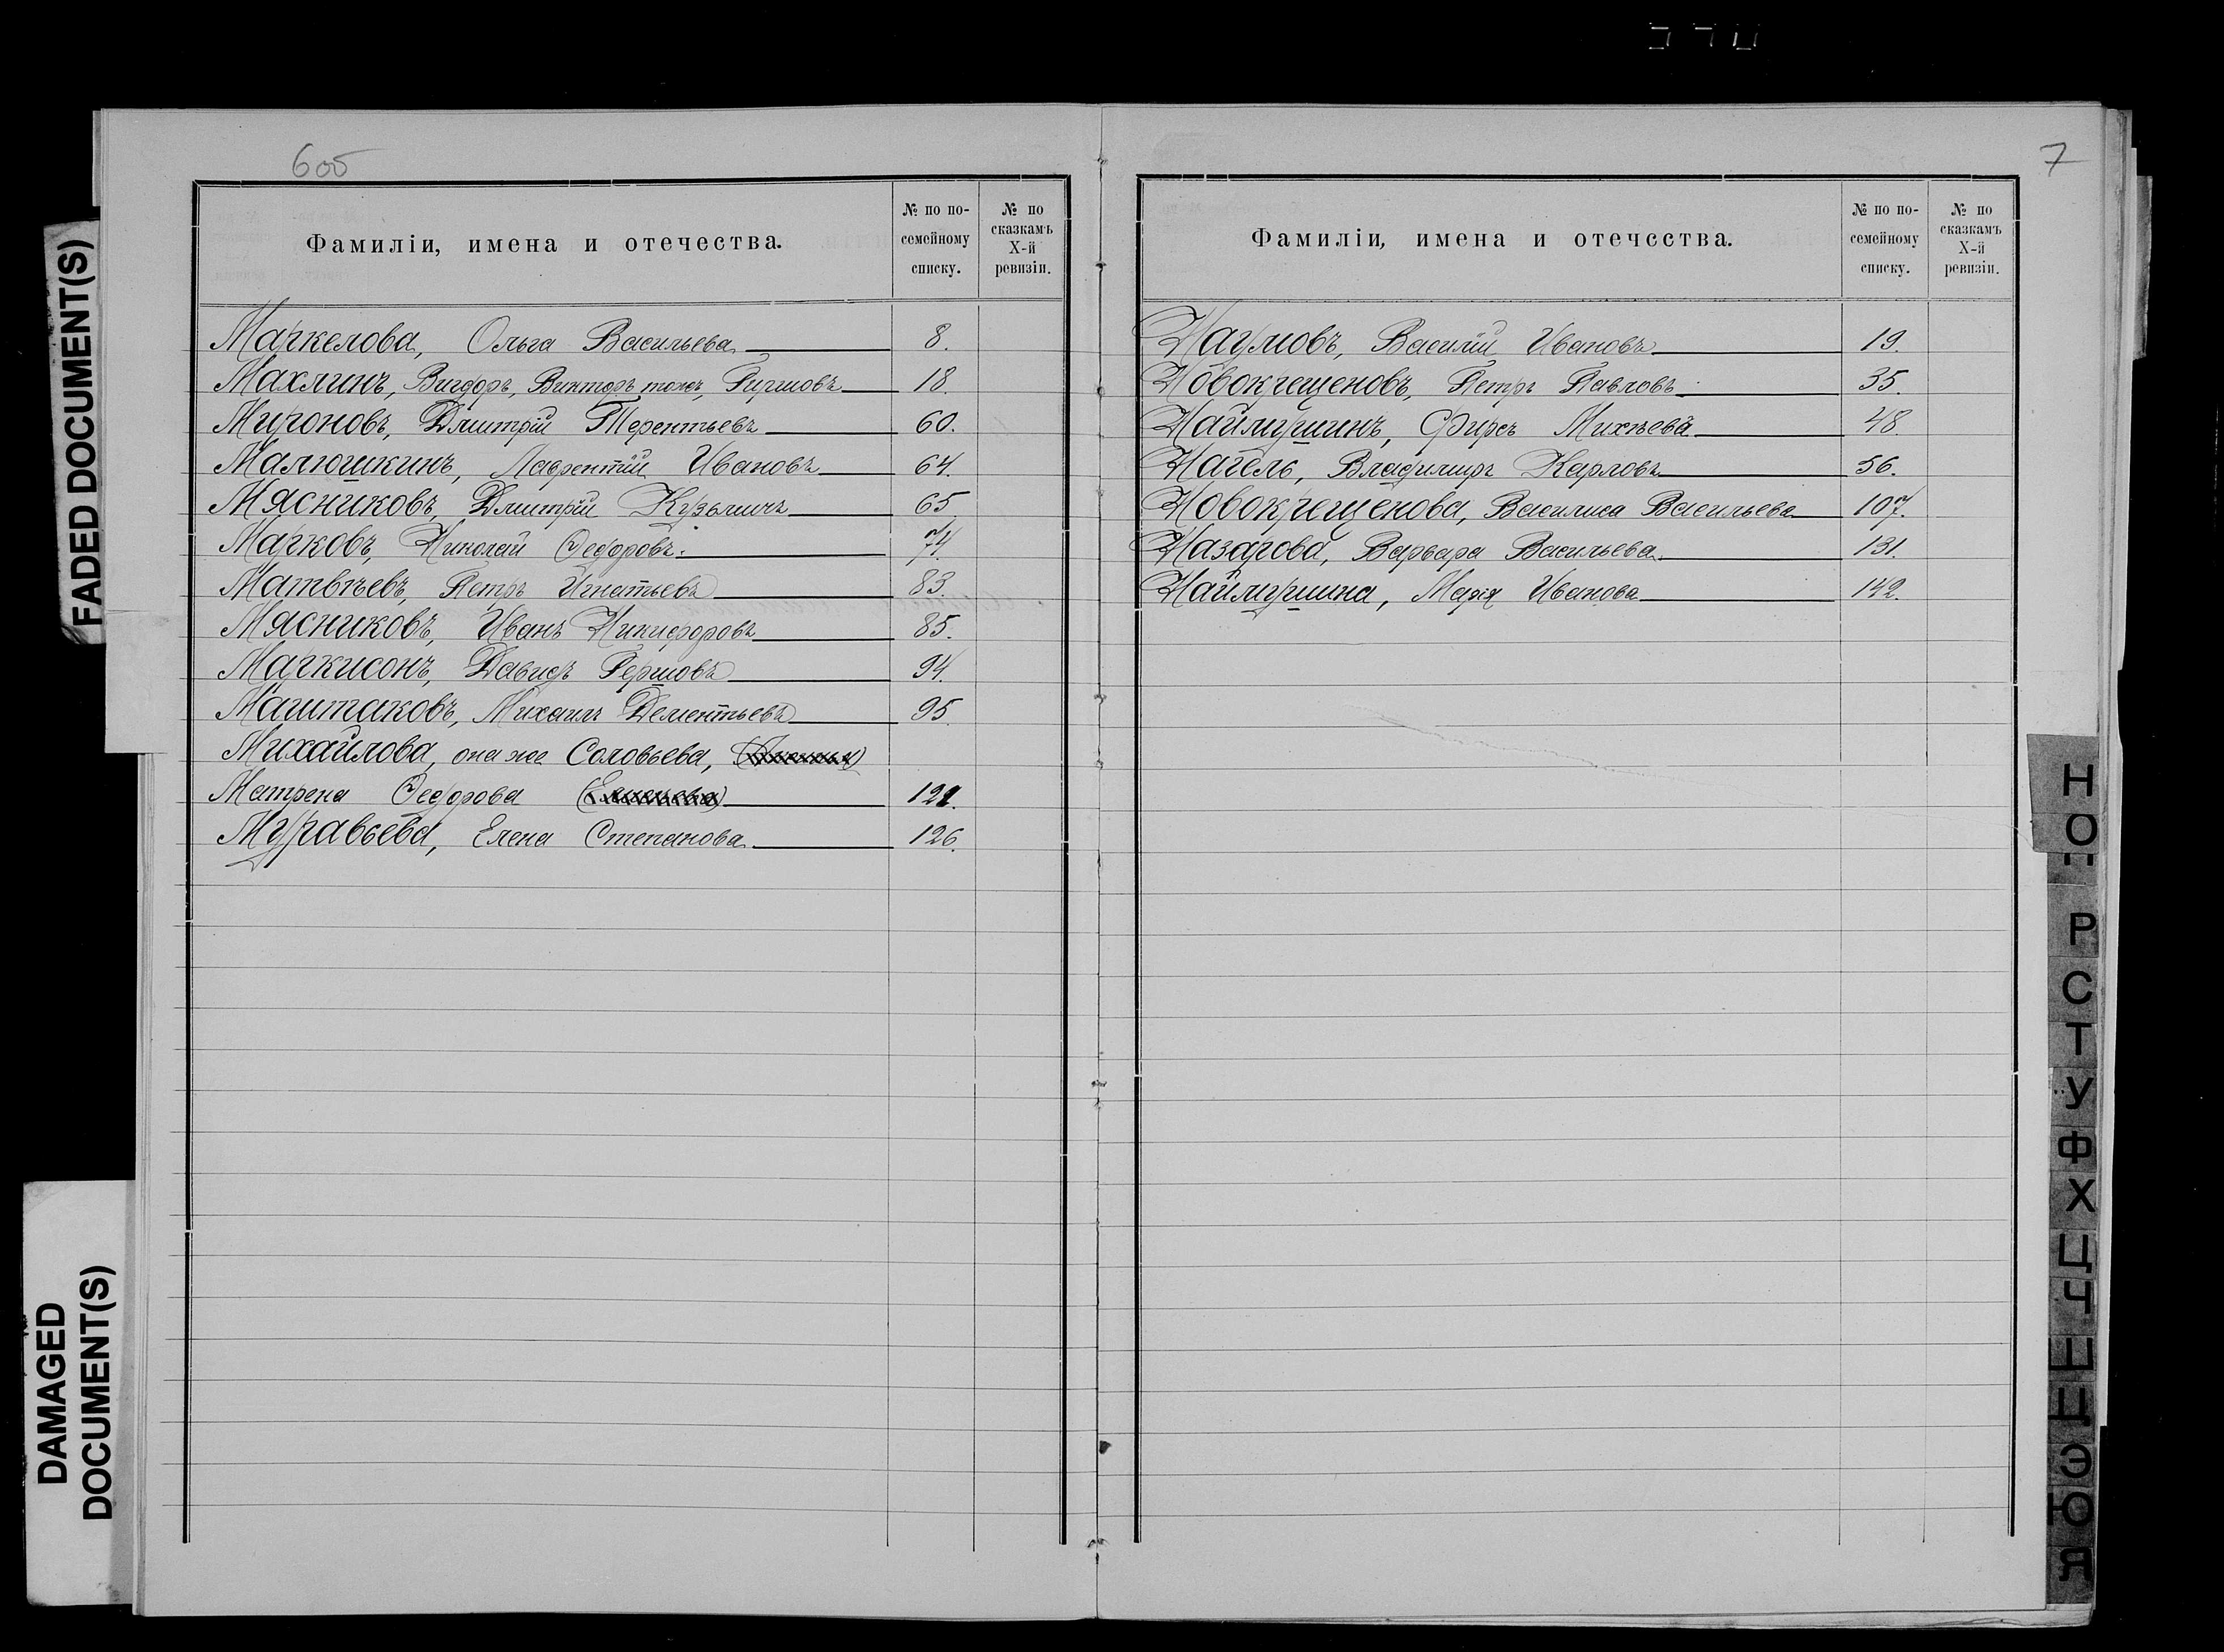 6об
Фамиліи, имена и отечества.
№ по по-
семейному
списку.
№ по
сказкамъ
X-й
ревизіи.
Маркелова, Ольга Васильева 8.
Махлинъ, Вигдоръ, Викторъ тожъ, Гиршовъ 18
Мироновъ, Дмитрій Терентьевъ 60.
Малюшкинъ, Лаврентій Ивановъ 64.
Мясниковъ, Дмитрій Кузьмичъ 65
Марковъ, Николай Федоровъ. 74.
Матвѣевъ, Петръ Игнатьевъ 83.
Мясниковъ, Иванъ Никифоровъ 85.
Маркисонъ, Давидъ Гершовъ 94.
Маштаковъ, Михаилъ Дементьевъ 95
Михайлова, она же Соловьева,
Матрена Федорова 121.
Муравьева, Елена Степанова 126.
7
Фамиліи, имена и отечества.
№ по по-
семейному
списку.
№ по
сказкамъ
X-й
ревизіи.
Наумовъ, Василій Ивановъ 19.
Новокрещеновъ, Петръ Павловъ 35.
Наймушинъ, Фирсъ Михѣевъ 48.
Нагель, Владиміръ Карловъ 56.
Новокрещенова, Василиса Васильева 107.
Назарова, Варвара Васильева 131.
Наймушина, Марія Иванова 142.
Н
О
П
Р
С
Т
У
Ф
Х
Ц
Ч
Ш
Щ
Э
Ю
Я
FADED DOCUMENT(S)
DAMAGED
DOCUMENT(S)